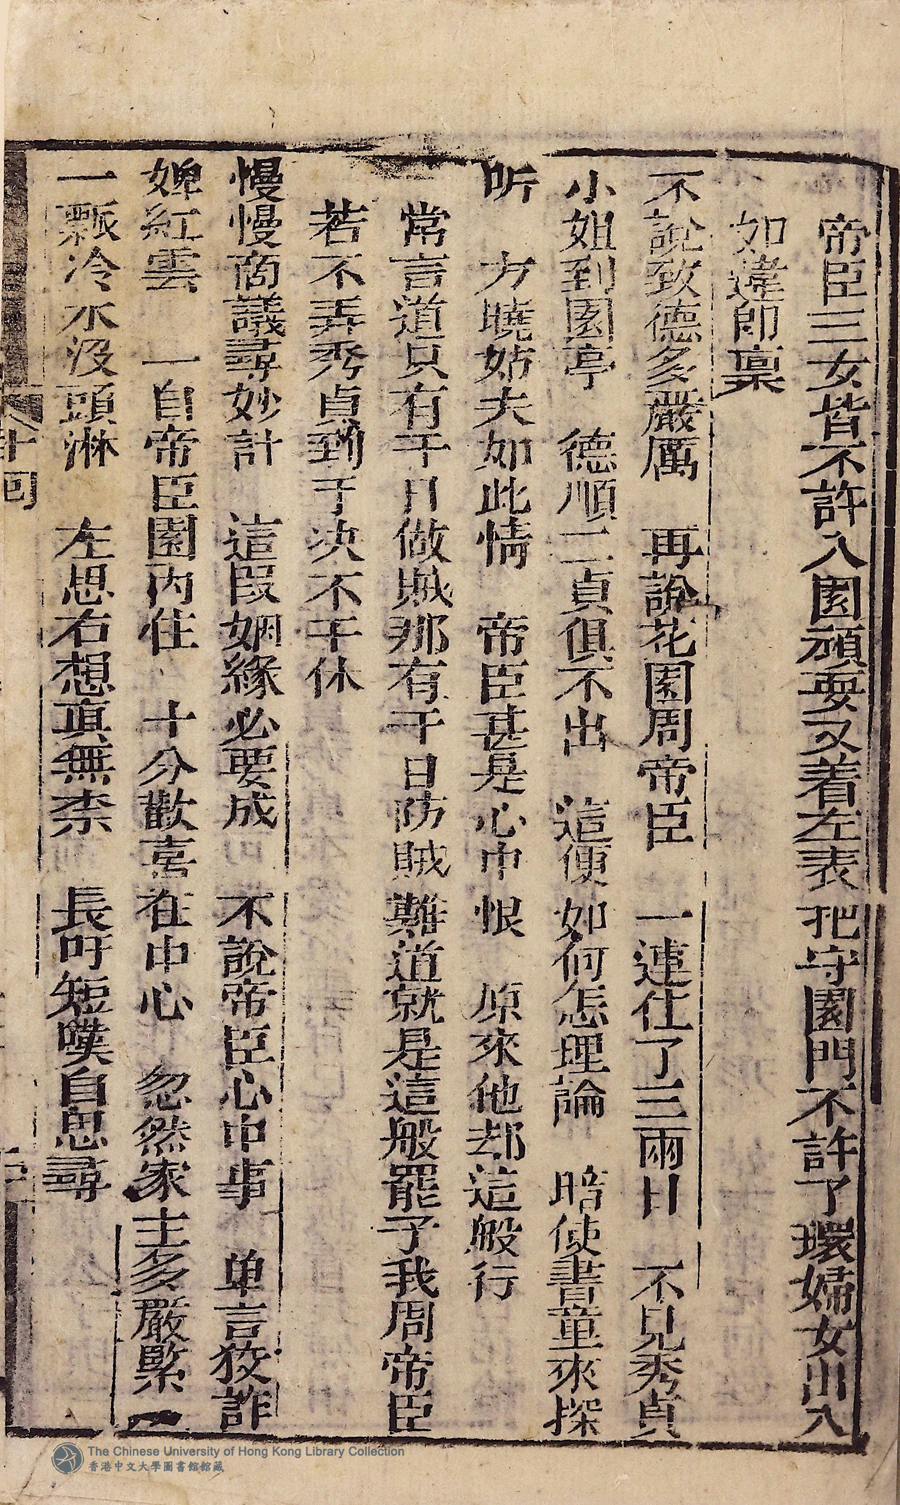 帝臣三女皆不許入園頑耍又着左表把守園門不許了環婦女出入
如違即禀
不說致德多嚴厲　再說花園周帝臣　一連住了三兩日　不見秀貞
小姐到園亭　德順二貞俱不出　這便如何怎理論　暗使書童來探
听　方曉姑夫如此情　帝臣甚是心中恨　原來他却這般行
常言道只有千日做賊那有千日防賊難道就是這般罷了我周帝臣
若不弄秀貞到手决不干休
慢慢商議尋妙計　這段姻緣必要成　不說帝臣心中事　单言狡詐
婢紅雲　一自帝臣園內住　十分歡喜在中心　忽然家主多嚴緊
一瓢冷水汲頭淋　左思右想真無柰　長吁短嘆自思尋
十四
The Chinese University of Hong Kong Library Collection
香港中文大學圖書館館藏